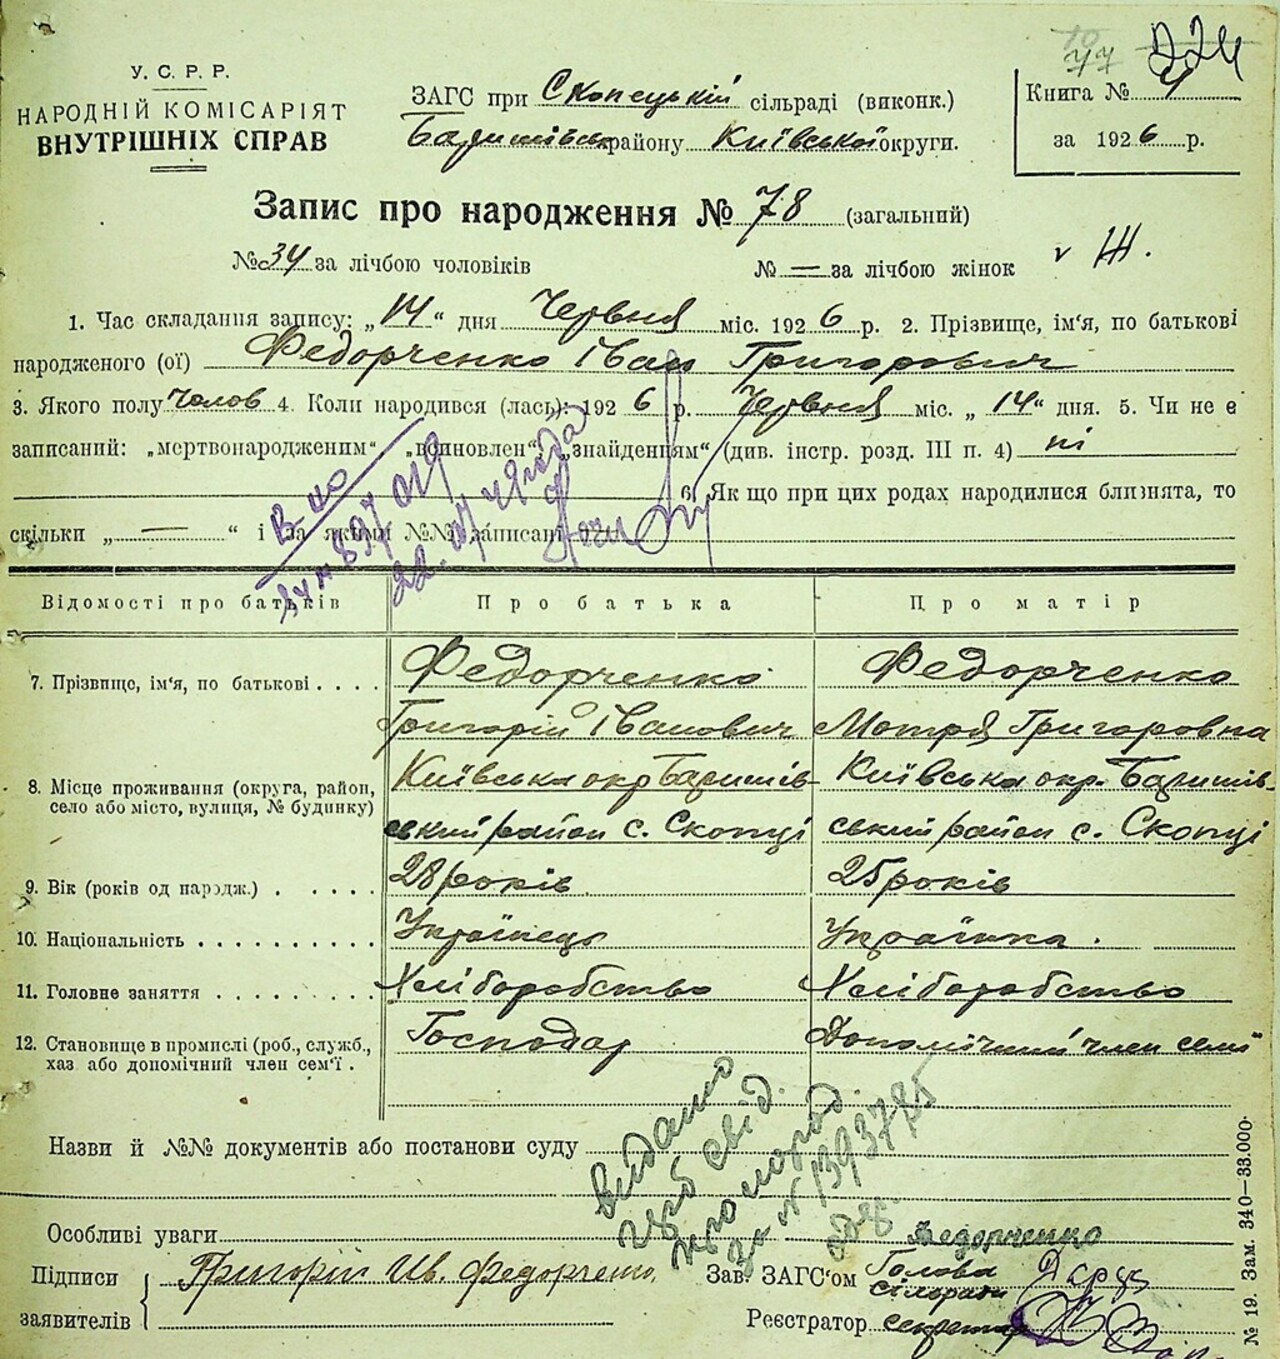 77 224
У. С. Р. Р.
НАРОДНІЙ КОМІСАРІЯТ
ВНУТРІШНІХ СПРАВ
ЗАГС при Скопецькій сільраді (виконк.)
Баришівськ району Київської округи.
Книга № 4
за 1926 р.
Запис про народження № 78 (загальний)
№ 34 за лічбою чоловіків № — за лічбою жінок
v Ж.
1. Час складання запису: „14“ дня Червня міс. 1926 р. 2. Прізвище, ім'я, по батькові
народженого (ої) Федорченко Іван Григорович
3. Якого полу чолов 4. Коли народився (лась): 1926 р. Червня міс. „14“ дня. 5. Чи не є
записаний: „мертвонародженим“ „всиновлен“, „знайденням“ (див. інстр. розд. III п. 4) ні
6. Як що при цих родах народилися близнята, то
скільки „ — “ і за якими №№ записані
22.
Відомості про батьків Про батька Про матір
7. Прізвище, ім'я, по батькові . . . . Федорченко Федорченко
Григорій Іванович Мотря Григоровна
8. Місце проживання (округа, район, Київська окр Баришів- Київська окр. Баришів-
село або місто, вулиця, № будинку) ський район с. Скопці ський район с. Скопці
9. Вік (років од народж.) . . . . . 28 років 25 років
10. Національність . . . . . . . . . . Українець Українка.
11. Головне заняття . . . . . . . . . Хліборобство Хліборобство
12. Становище в промислі (роб., служб., Господар Допомічний член семї
хаз. або допомічний член сем'ї .
Назви й №№ документів або постанови суду
видано
свід.
за № 1393785
Особливі уваги Федорченко
Підписи заявителів Григорій Ив. Федорченко. Зав. ЗАГС'ом Голова
сільради
Реєстратор секретар
№ 19. Зам. 340—33.000.